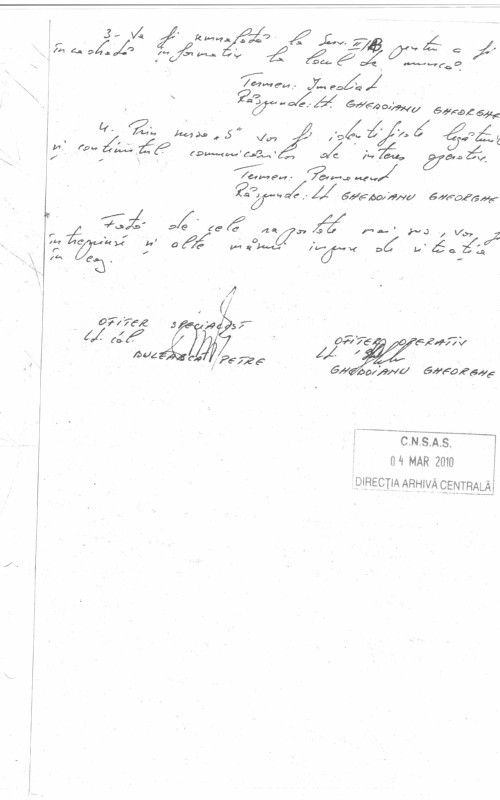 3- Va fi semnalată la Serv. II/B pentru a fi
încadrată informativ la locul de muncă.
Termen: Imediat
Răspunde: Lt. GHEDOIANU GHEORGHE
4. Prin sursa „S" vor fi identificate legăturile
și conținutul comunicărilor de interes operativ.
Termen: Permanent
Răspunde: Lt GHEDOIANU GHEORGHE
Față de cele raportate mai sus, vor fi
întreprinse și alte măsuri impuse de situația
în caz.
OFIȚER SPECIALIST
Lt. col.
PETRE
OFIȚER OPERATIV
Lt.
GHEDOIANU GHEORGHE
C.N.S.A.S.
04 MAR 2010
DIRECȚIA ARHIVĂ CENTRALĂ